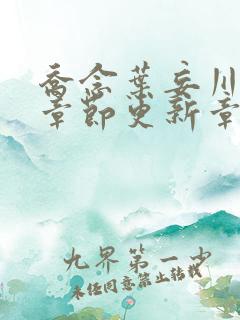 乔念葉妄川
章節更新章
九界第一少
未经同意禁止转载